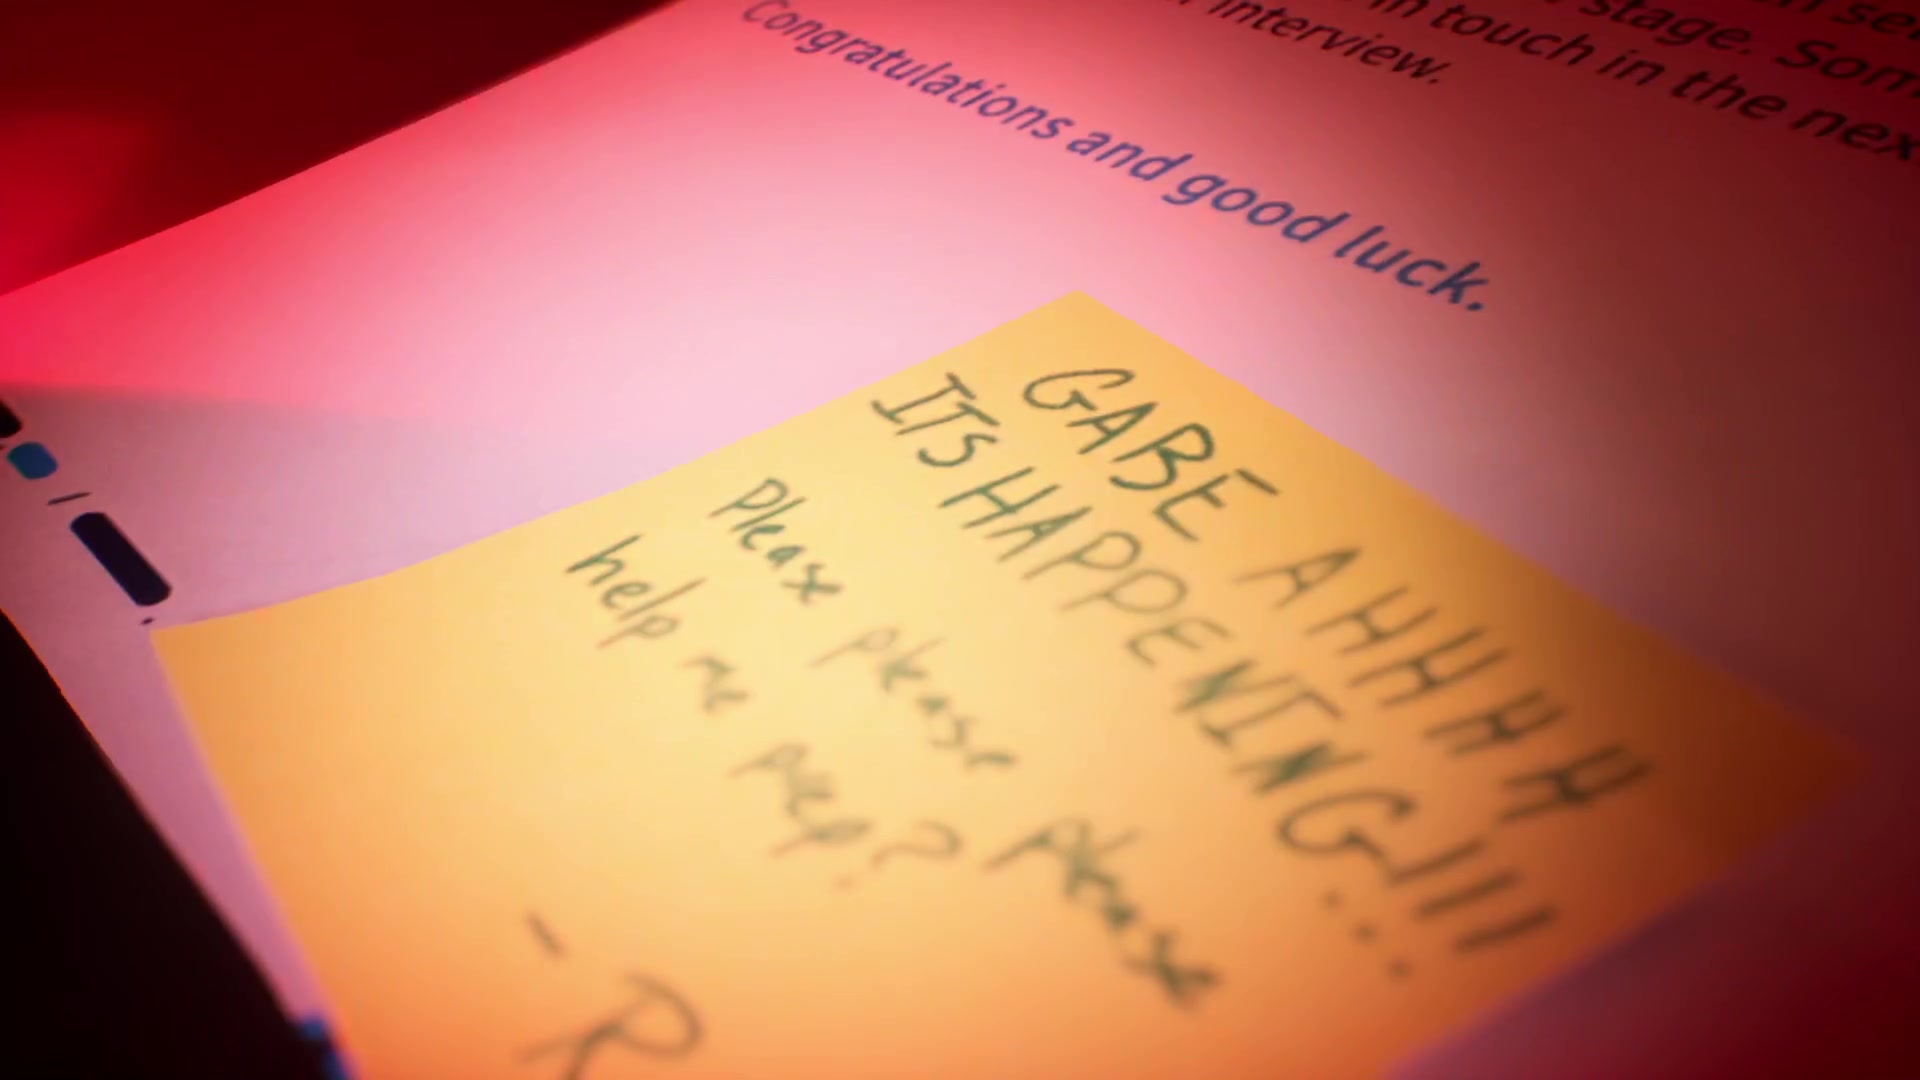 stage. Som
in touch in the nex
interview.
Congratulations and good luck.
GABE AHHHH
ITS HAPPENING!!!
Please please please
help me prep?
- R